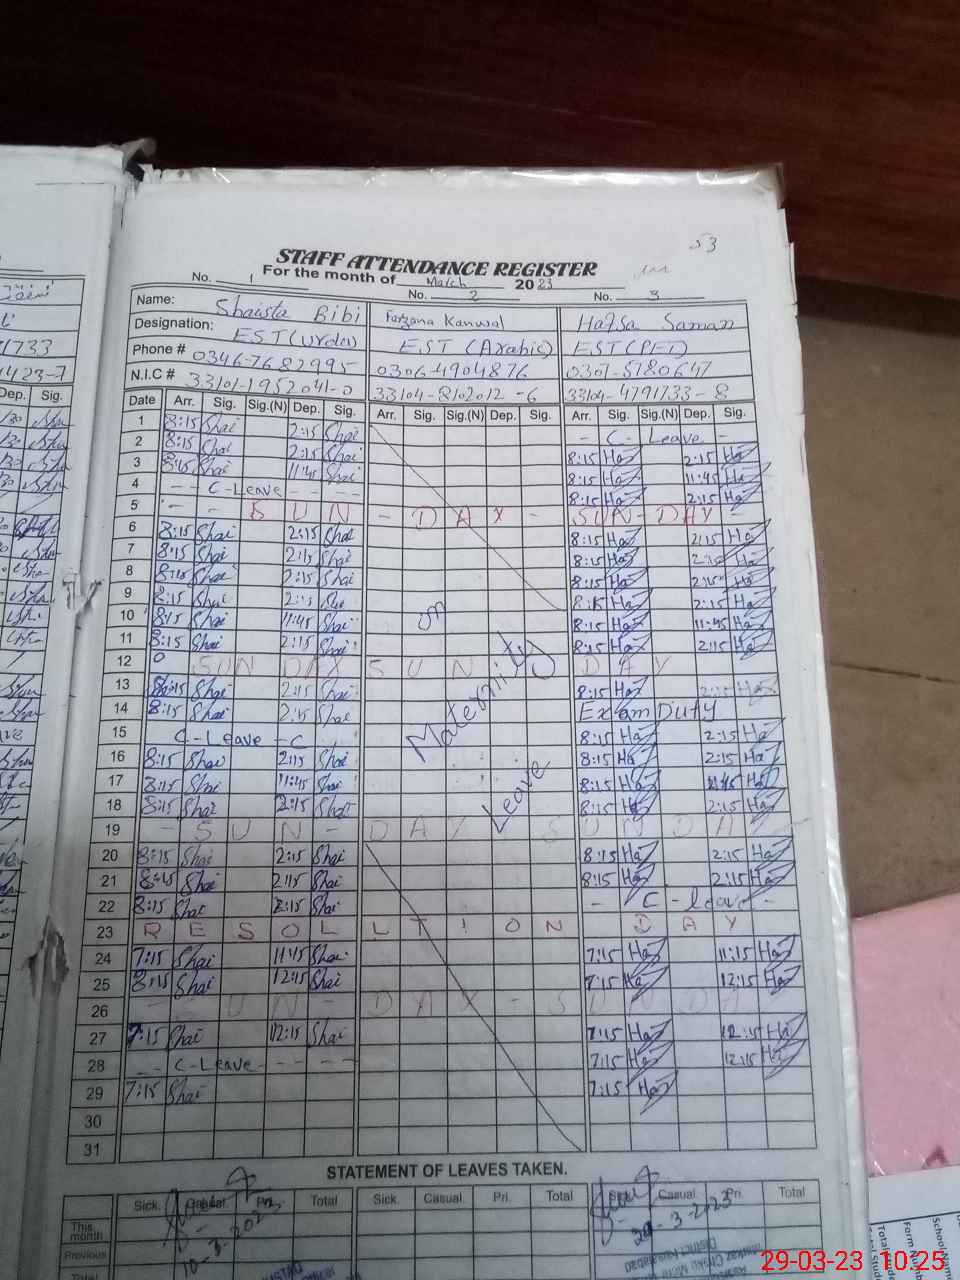 53
STAFF ATTENDANCE REGISTER
For the month of March 2023
No. 1 No. 2 No. 3
Name: Shaista Bibi Farzana Kanwal Hafsa Saman
Designation: EST (Urdu) EST (Arabic) EST (PET)
Phone # 0346-7682995 0306-4904876 0307-5780647
N.I.C # 33101-1952041-0 33104-8102012-6 33104-4791733-8
Date Arr. Sig. Sig.(N) Dep. Sig. Arr. Sig. Sig.(N) Dep. Sig. Arr. Sig. Sig.(N) Dep. Sig.
1 8:15 Shai 2:15 Shai - C- Leave -
2 8:15 Shai 2:15 Shai 8:15 Ha 2:15 Ha
3 8:15 Shai 11:45 Shai 8:15 Ha 11:45 Ha
4 -- C-Leave ---- 8:15 Ha 2:15 Ha
5 - - SUN - DAY - SUN-DAY
6 8:15 Shai 2:15 Shai 8:15 Ha 2:15 Ha
7 8:15 Shai 2:15 Shai 8:15 Ha Ha
8 8:15 Shai 2:15 Shai 8:15 Ha Ha
9 8:15 Shai Shai 8:15 Ha 2:15 Ha
10 8:15 Shai 11:45 Shai 8:15 Ha 11:45 Ha
11 8:15 Shai 2:15 Shai 8:15 Ha 2:15 Ha
12 SUN DAY SUN DAY
13 8:15 Shai 2:15 Shai 8:15 Ha 2:15 Ha
14 8:15 Shai 2:15 Shai Exam Duty
15 C-Leave - C 8:15 Ha 2:15 Ha
16 8:15 Shai 2:15 Shai 8:15 Ha 2:15 Ha
17 8:15 Shai 11:45 Shai 8:15 Ha 11:45 Ha
18 8:15 Shai 2:15 Shai 8:15 Ha 2:15 Ha
on
Maternity
Leave
19 - SUN - DAY SUNDA
20 8:15 Shai 2:15 Shai 8:15 Ha 2:15 Ha
21 8:15 Shai 2:15 Shai 8:15 Ha 2:15 Ha
22 8:15 Shai 2:15 Shai - C-leave -
23 RESOLLTION DAY
24 7:15 Shai 11:45 Shai 7:15 Ha 11:15 Ha
25 8:15 Shai 12:15 Shai 7:15 Ha 12:15 Ha
26 - SUN - DAY - SUNDA
27 7:15 Shai 12:15 Shai 7:15 Ha 12:15 Ha
28 -- C-Leave ---- 7:15 Ha 12:15 Ha
29 7:15 Shai 7:15 Ha
30
31
STATEMENT OF LEAVES TAKEN.
Sick. Casual. Pri. Total Sick. Casual. Pri. Total Sick. Casual. Pri. Total
This month
Previous
Total
10-3-2023
29-3-2023
29-03-23 10:25